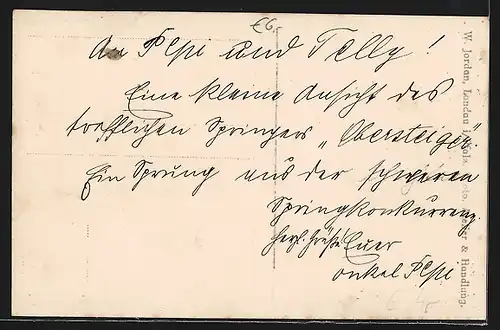 €6,-
An Pepi und Telly!
Eine kleine Ansicht des
trefflichen Springers „Obersteiger"
Ein Sprung aus der schweren
Springkonkurrenz
Herzl. Grüße Euer
onkel Pepi
W. Jordan, Landau i. Pfalz. Photo. Atelier & Handlung.